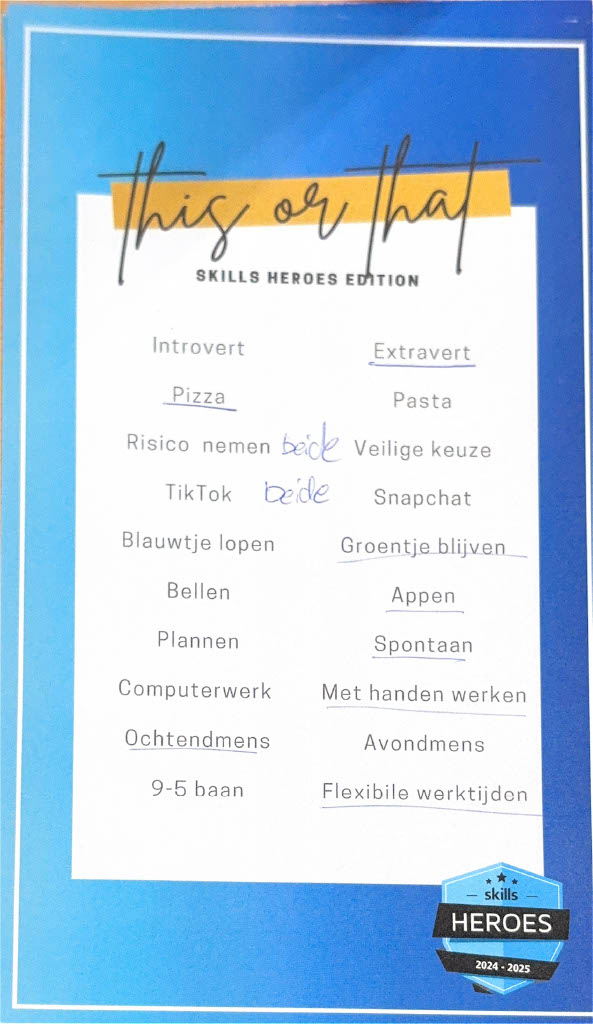 this or that
SKILLS HEROES EDITION
Introvert Extravert
Pizza Pasta
Risico nemen beide Veilige keuze
TikTok beide Snapchat
Blauwtje lopen Groentje blijven
Bellen Appen
Plannen Spontaan
Computerwerk Met handen werken
Ochtendmens Avondmens
9-5 baan Flexibile werktijden
skills
HEROES
2024 - 2025